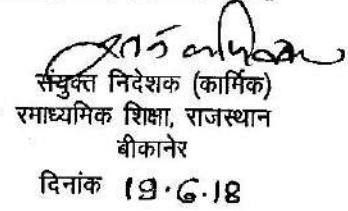 संयुक्त निदेशक (कार्मिक)
रमाध्यमिक शिक्षा, राजस्थान
बीकानेर
दिनांक 19.6.18